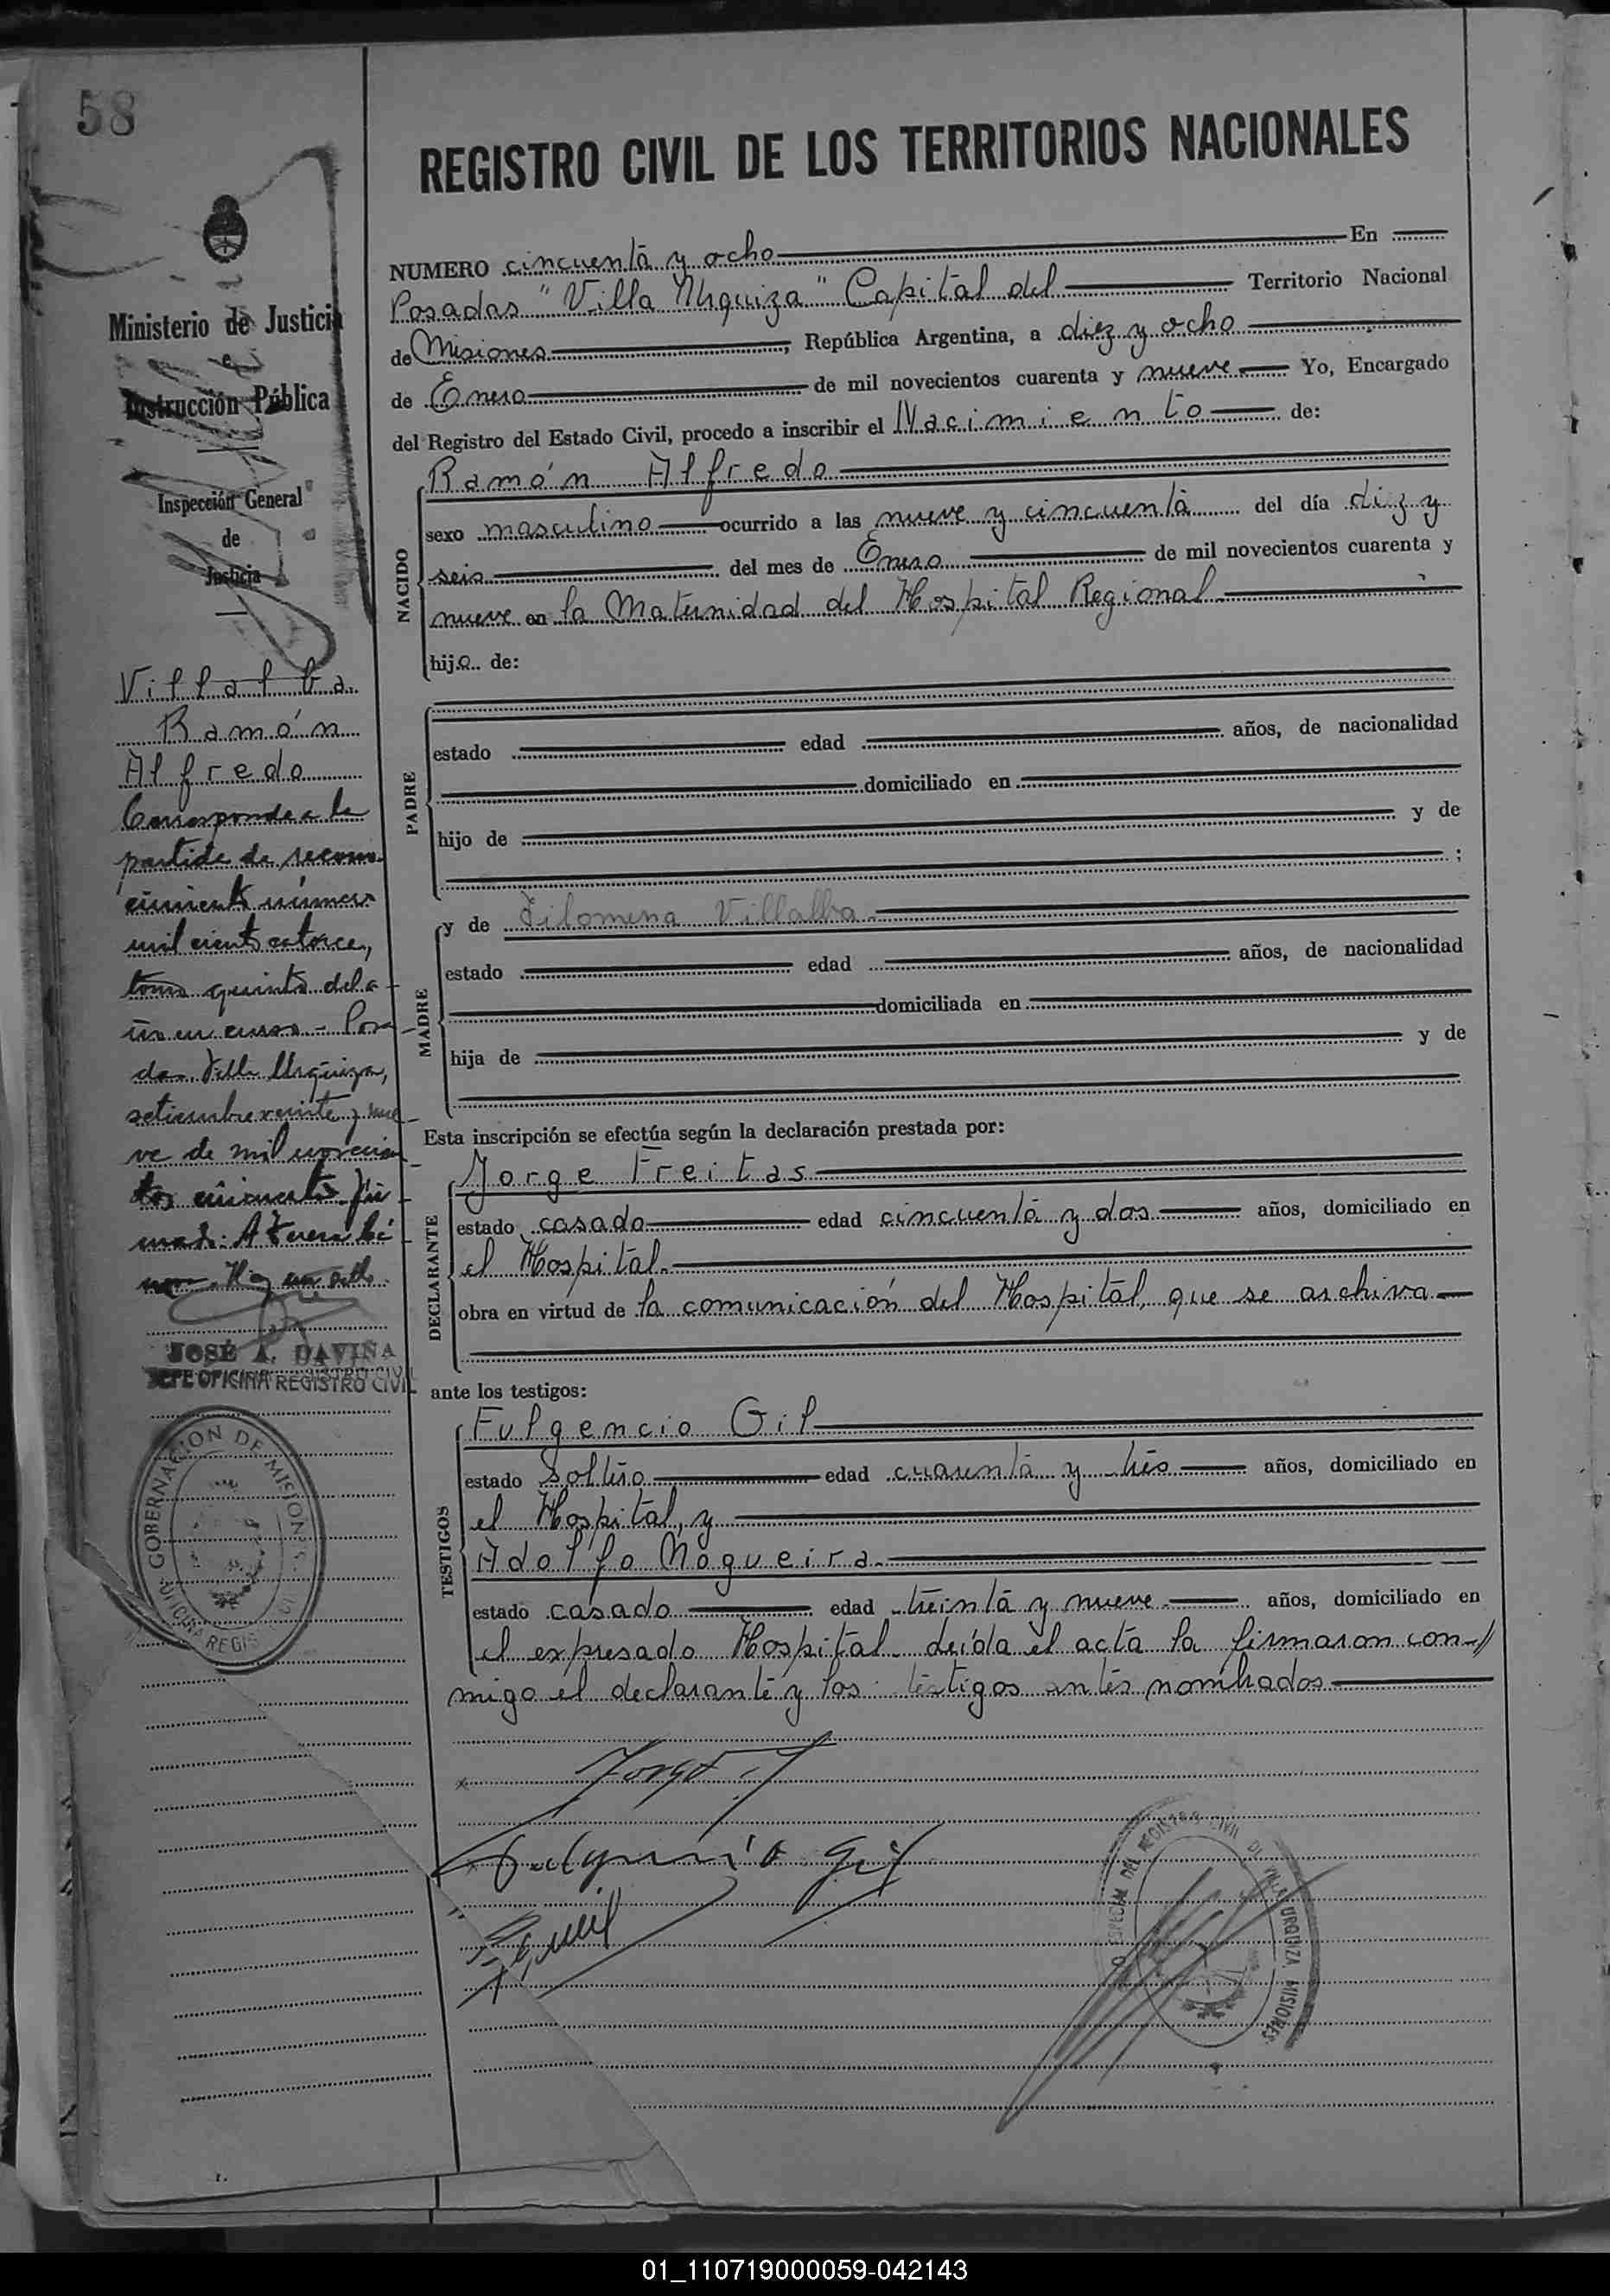 58
REGISTRO CIVIL DE LOS TERRITORIOS NACIONALES
Ministerio de Justicia
e
Instrucción Pública
Inspección General
de
Justicia
Villalba
Ramón
Alfredo
Corresponde a la
partida de recono-
cimiento número
mil ciento catorce,
tomo quinto del a-
ño en curso - Posa-
das, Villa Urquiza,
setiembre veinte y nue-
ve de mil novecien-
tos cincuenta. Fir-
mado: A
Hay un sello.
JOSÉ A. DAVIÑA
JEFE OFICINA REGISTRO CIVIL
GOBERNACION DE MISIONES
OFICINA REGISTRO CIVIL
NUMERO cincuenta y ocho En
Posadas "Villa Urquiza" Capital del Territorio Nacional
de Misiones, República Argentina, a diez y ocho
de Enero de mil novecientos cuarenta y nueve Yo, Encargado
del Registro del Estado Civil, procedo a inscribir el Nacimiento de:
NACIDO
Ramón Alfredo
sexo masculino ocurrido a las nueve y cincuenta del día diez y
seis del mes de Enero de mil novecientos cuarenta y
nueve en la Maternidad del Hospital Regional
hijo de:
PADRE
estado edad años, de nacionalidad
domiciliado en
hijo de y de
;
MADRE
y de Filomena Villalba
estado edad años, de nacionalidad
domiciliada en
hija de y de
Esta inscripción se efectúa según la declaración prestada por:
DECLARANTE
Jorge Freitas
estado casado edad cincuenta y dos años, domiciliado en
el Hospital
obra en virtud de la comunicación del Hospital, que se archiva
ante los testigos:
TESTIGOS
Fulgencio Gil
estado soltero edad cuarenta y tres años, domiciliado en
el Hospital, y
Adolfo Nogueira
estado casado edad treinta y nueve años, domiciliado en
el expresado Hospital. Leída el acta la firmaron con-//
migo el declarante y los testigos antes nombrados
Jorge F
Fulgencio Gil
ESPECIAL DEL REGISTRO CIVIL DE VILLA URQUIZA MISIONES
01_110719000059-042143